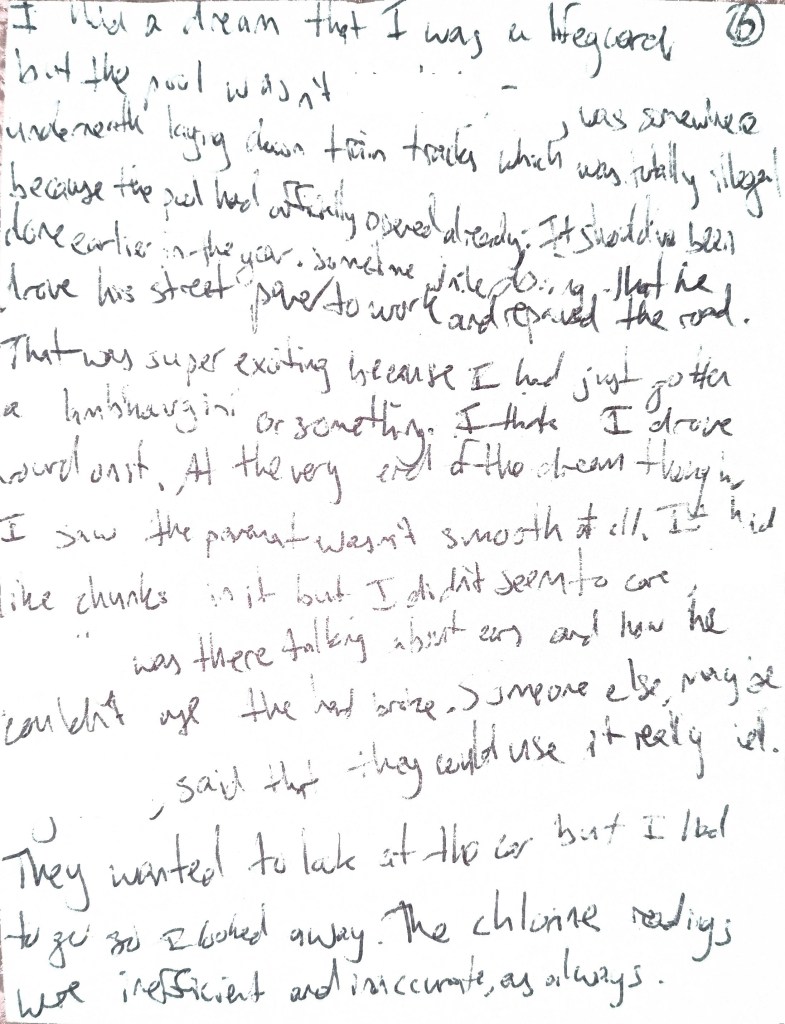 I had a dream that I was a lifeguard ⑥
but the pool wasn't
, was somewhere
underneath laying down train tracks which was totally illegal
because the pool had officially opened already. It should've been
done earlier in the year. Sometime while doing that he
drove his street paver to work and repaved the road.
That was super exiting because I had just gotten
a lambhurgini or something. I think I drove
around on it. At the very end of the dream though,
I saw the pavement wasn't smooth at all. It had
like chunks in it but I didn't seem to care.
was there talking about cars and how he
couldn't use the hand brake. Someone else, maybe
, said that they could use it really well.
They wanted to look at the car but I had
to go so I looked away. The chlorine readings
were inefficient and inaccurate, as always.